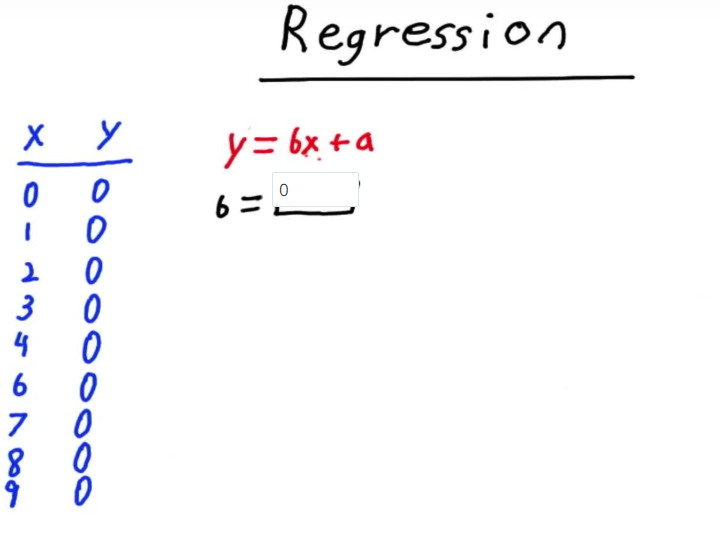 Regression
x y
0 0
1 0
2 0
3 0
4 0
6 0
7 0
8 0
9 0
y = bx + a
b = 0